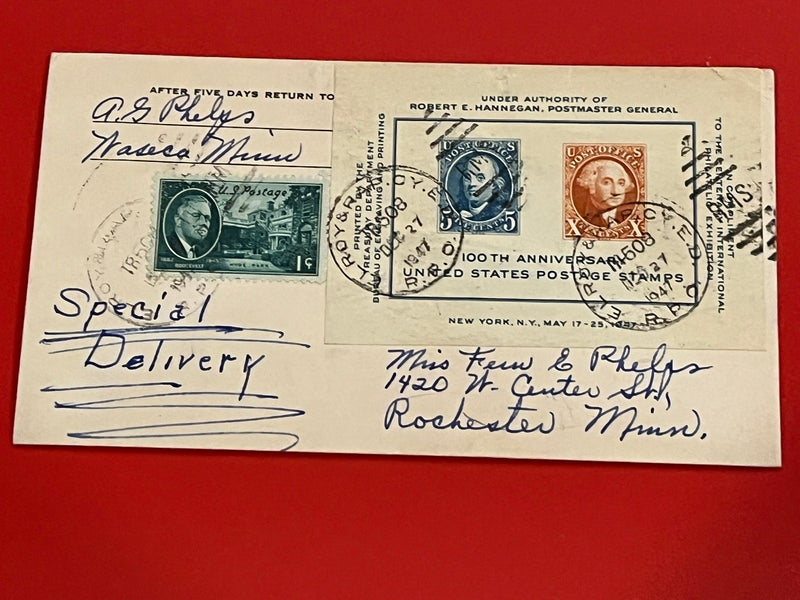 AFTER FIVE DAYS RETURN TO
A.G Phelps
Waseca, Minn
U.S. Postage
1882 ROOSEVELT
HYDE PARK
1¢
Special
Delivery
UNDER AUTHORITY OF
ROBERT E. HANNEGAN, POSTMASTER GENERAL
PRINTED BY THE
TREASURY DEPARTMENT
BUREAU OF ENGRAVING AND PRINTING
U S
POST OFFICE
5 5
U S
POST OFFICE
X X
TEN CENTS
IN COMPLIMENT
TO THE CENTENARY INTERNATIONAL
PHILATELIC EXHIBITION
100TH ANNIVERSARY
UNITED STATES POSTAGE STAMPS
NEW YORK, N.Y., MAY 17-25, 1947
DEC 27
1947
R.P.O.
TR 508
DEC 27
1947
R.P.O.
Miss Fern E Phelps
1420 W. Center St,
Rochester Minn.